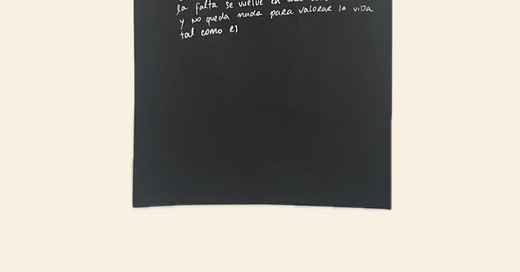 la falta se vuelve en
y no queda nada para valorar la vida
tal como es